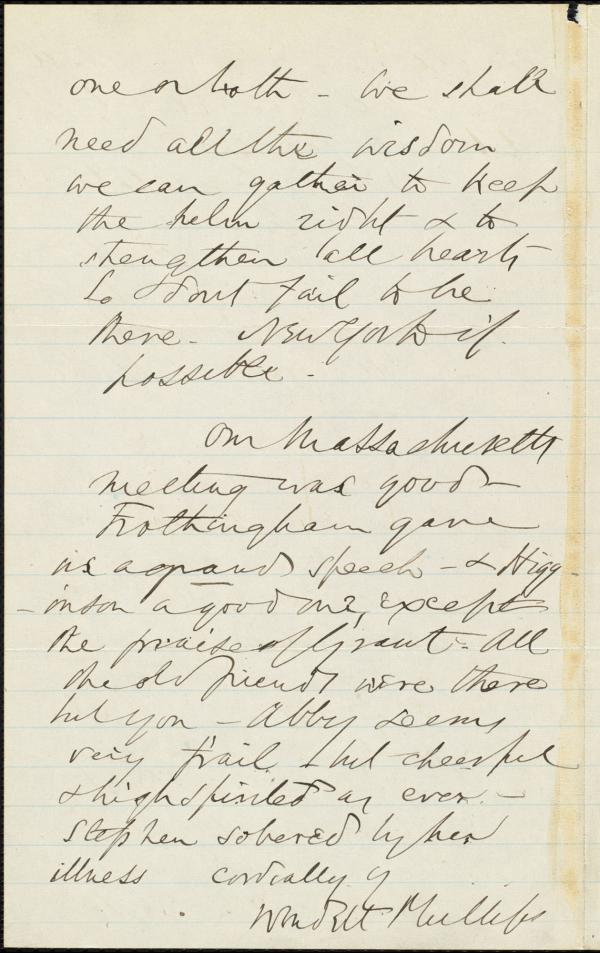 one or both - We shall
need all the wisdom
we can gather to keep
the helm right & to
strengthen all hearts
So dont fail to be
there - New York if
possible -
Our Massachusetts
meeting was good -
Frothingham gave
us a grand speech - & Higg
- inson a good one, except
the praise of Grant - All
the old friends were there
but you - Abby seems
very frail - but cheerful
& high spirited as ever -
Stephen sobered by her
illness cordially y
Wendell Phillips